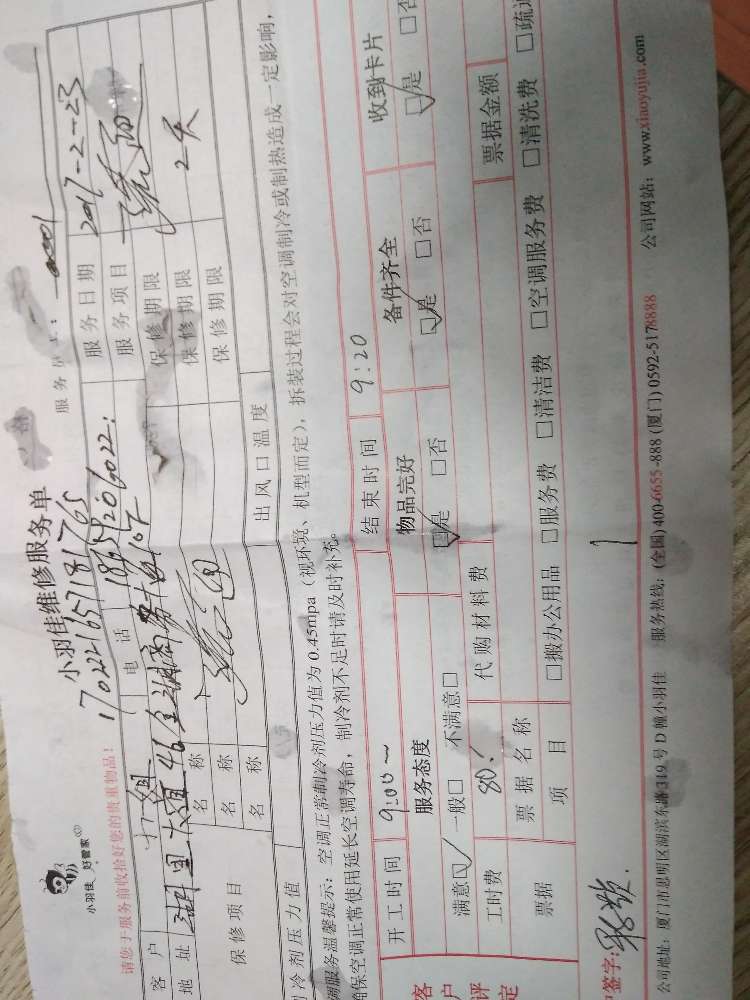 小羽佳 好管家
小羽佳维修服务单
1702221657181765
请您于服务前收拾好您的贵重物品！
服务
客户 电话 服务日期 2017-2-23
地址 服务项目
保修项目 名称 保修期限
名称 保修期限 2天
名称 保修期限
冷剂压力值 出风口温度
调服务温馨提示：空调正常制冷剂压力值为0.45mpa（视环境、机型而定），拆装过程会对空调制冷或制热造成一定影响，
确保空调正常使用延长空调寿命，制冷剂不足时请及时补充。
开工时间 9:00~ 结束时间 9:20
客户评定 服务态度 物品完好 备件齐全 收到卡片
满意☑ 一般□ 不满意□ ☑是 □否 ☑是 □否 ☑是 □否
工时费 80. 代购材料费
票据 票据名称 票据金额
项目 □搬办公用品 □服务费 □清洁费 □空调服务费 □清洗费 □疏
户签字：
公司地址：厦门市思明区湖滨东路319号D幢小羽佳 服务热线：(全国)400-6655-888 (厦门)0592-5178888 公司网站：www.xiaoyujia.com